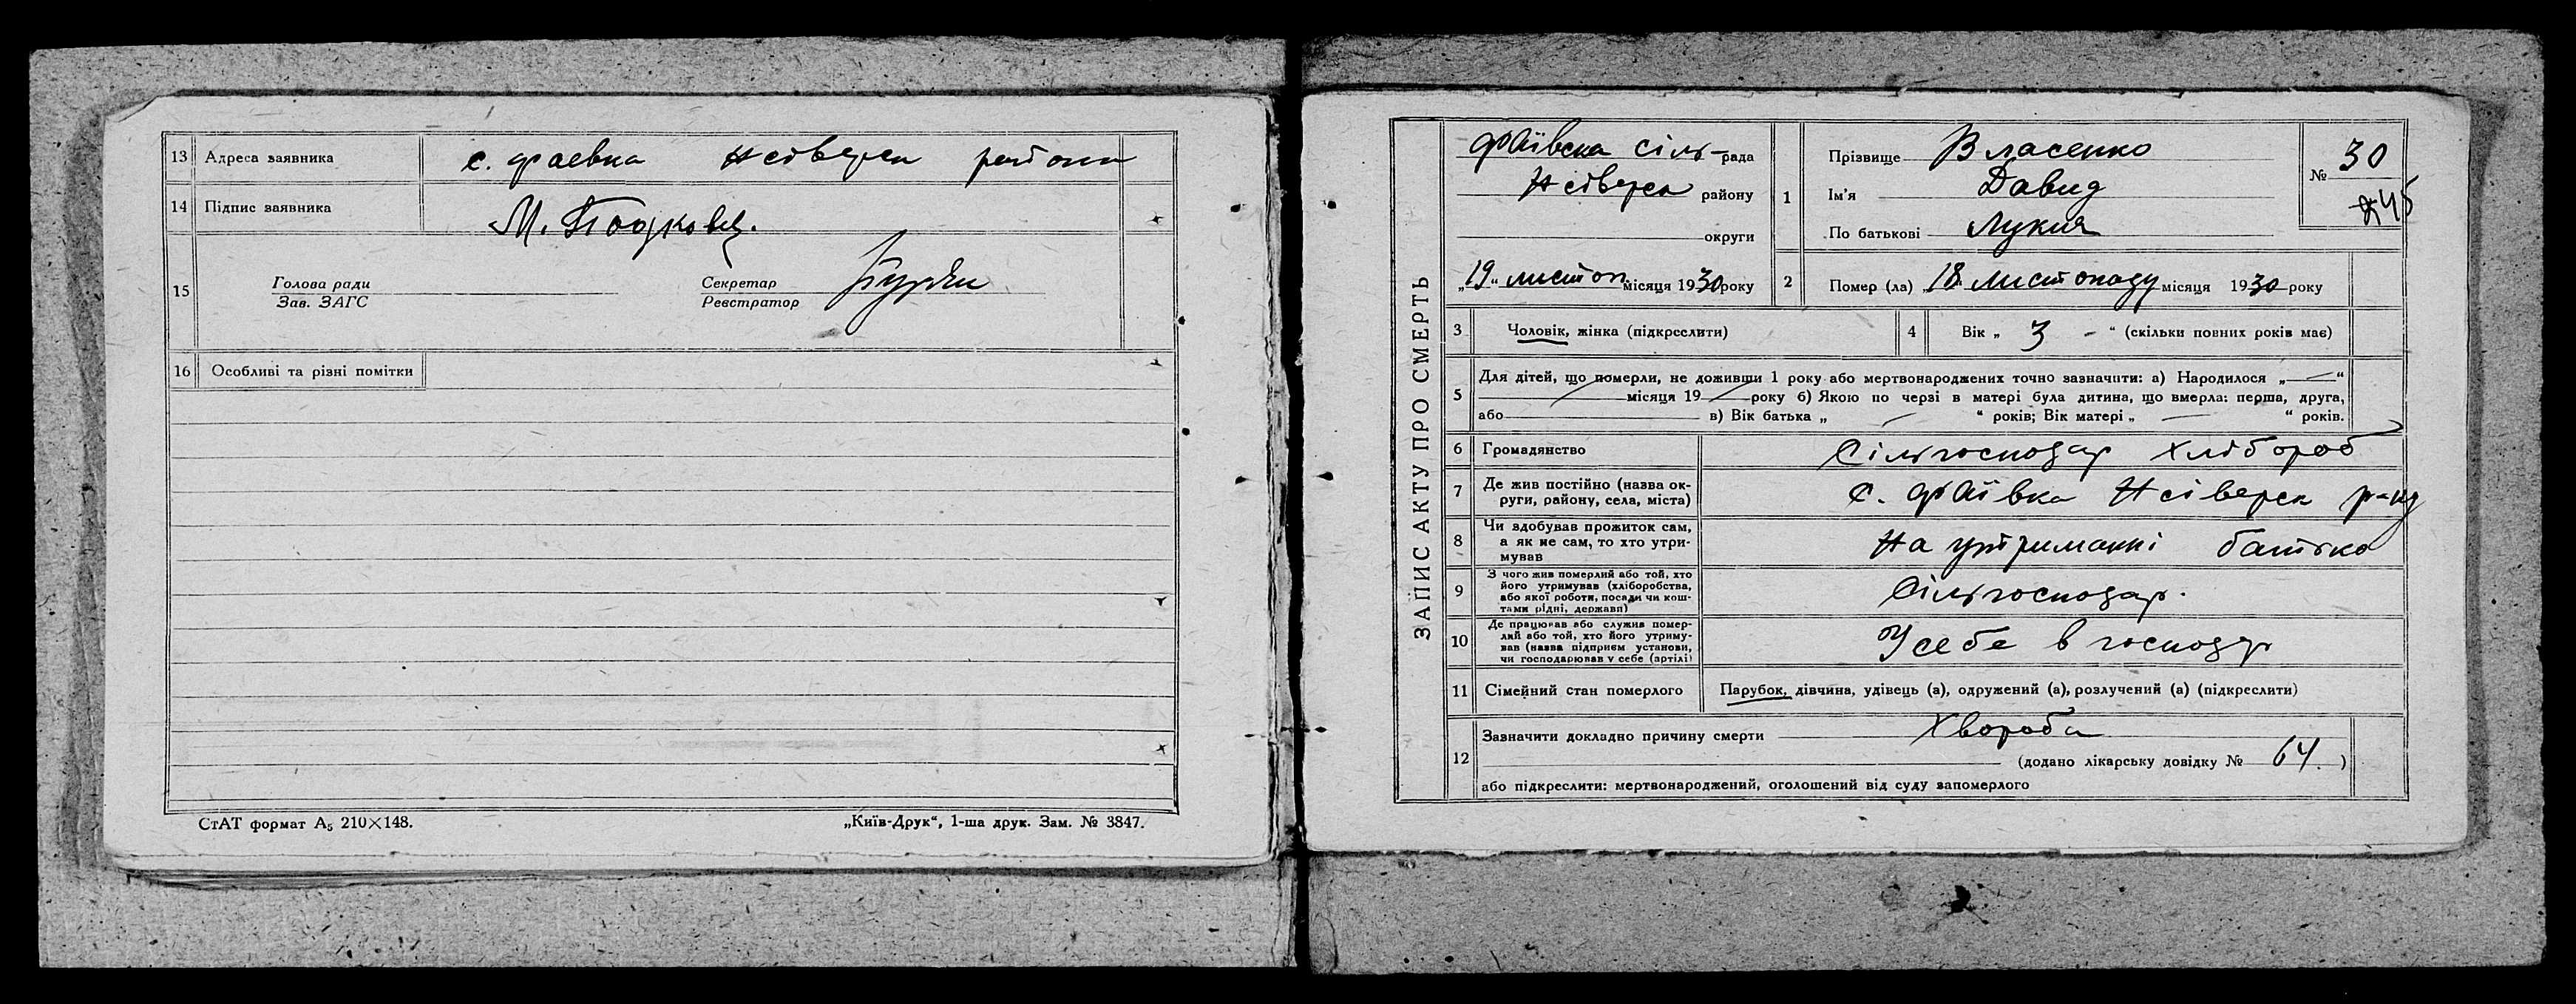 13 Адреса заявника с. Фаевка Нсіверск района
14 Підпис заявника М.
15 Голова ради Секретар
Зав. ЗАГС Реєстратор
16 Особливі та різні помітки
СтАТ формат А₅ 210×148. „Київ-Друк“, 1-ша друк. Зам. № 3847.
ЗАПИС АКТУ ПРО СМЕРТЬ
Фаївска сіль-рада
Нсіверск району
округи
„19“ листоп. місяця 1930 року
1 Прізвище Власенко
Ім'я Давид
По батькові Лукич
№ 30
2 Помер (ла) „18“ листопаду місяця 1930 року
3 Чоловік, жінка (підкреслити) 4 Вік „ 3 - “ (скільки повних років має)
5 Для дітей, що померли, не доживши 1 року або мертвонароджених точно зазначити: а) Народилося „ — “
місяця 19 року б) Якою по черзі в матері була дитина, що вмерла: перша, друга,
або в) Вік батька „ — “ років; Вік матері „ — “ років.
6 Громадянство Сільгосподар хлібороб
7 Де жив постійно (назва ок-
руги, району, села, міста) с. Фаївка Нсіверск р-ну
8 Чи здобував прожиток сам,
а як не сам, то хто утри-
мував На утриманні батька
9 З чого жив померлий або той, хто
його утримував (хліборобства,
або якої роботи, посади чи кош-
тами рідні, держави) Сільгосподар.
10 Де працював або служив помер-
лий або той, хто його утриму-
вав (назва підприєм установи,
чи господарював у себе (артілі) У себе в господар
11 Сімейний стан померлого Парубок, дівчина, удівець (а), одружений (а), розлучений (а) (підкреслити)
12 Зазначити докладно причину смерти Хвороба
(додано лікарську довідку № 64. )
або підкреслити: мертвонароджений, оголошений від суду запомерлого